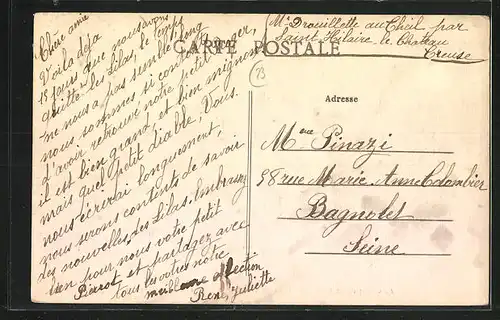 Chère amie
Voila déja
15 jours que nous avons
quitté les Lilas, le temps
ne nous a pas semblé long
nous sommes si content
d'avoir retrouver notre petit
il est bien grand et bien mignon
mais quel petit diable, Vous
nous écrirai longuement,
nous serons contents de savoir
des nouvelles des Lilas. Embrassez
bien pour nous votre petit
Pierrot et partagez avec
tous les votres notre
meilleure affection
René Juliette
CARTE POSTALE
Mr Drouillette au Cheil par
Saint Hilaire le Château
Creuse
Adresse
Mme Pinazi
58 rue Marie Anne Colombier
Bagnolet
Seine